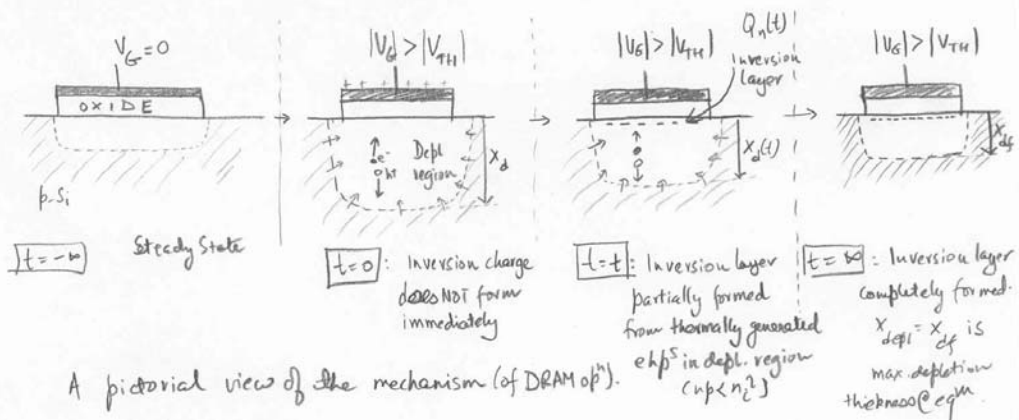 V_G = 0
OXIDE
p-Si
t = -∞
Steady State
|V_G| > |V_TH|
+ + + + + + +
e-
h+
Depl
region
X_d
t = 0 : Inversion charge
does NOT form
immediately
|V_G| > |V_TH|
Q_n(t)
Inversion
layer
X_d(t)
t = t : Inversion layer
partially formed
from thermally generated
ehp^s in depl. region
(np < n_i^2)
|V_G| > |V_TH|
X_df
t = ∞ : Inversion layer
completely formed.
X_depl = X_df is
max. depletion
thickness @ eq^m.
A pictorial view of the mechanism (of DRAM op^n).